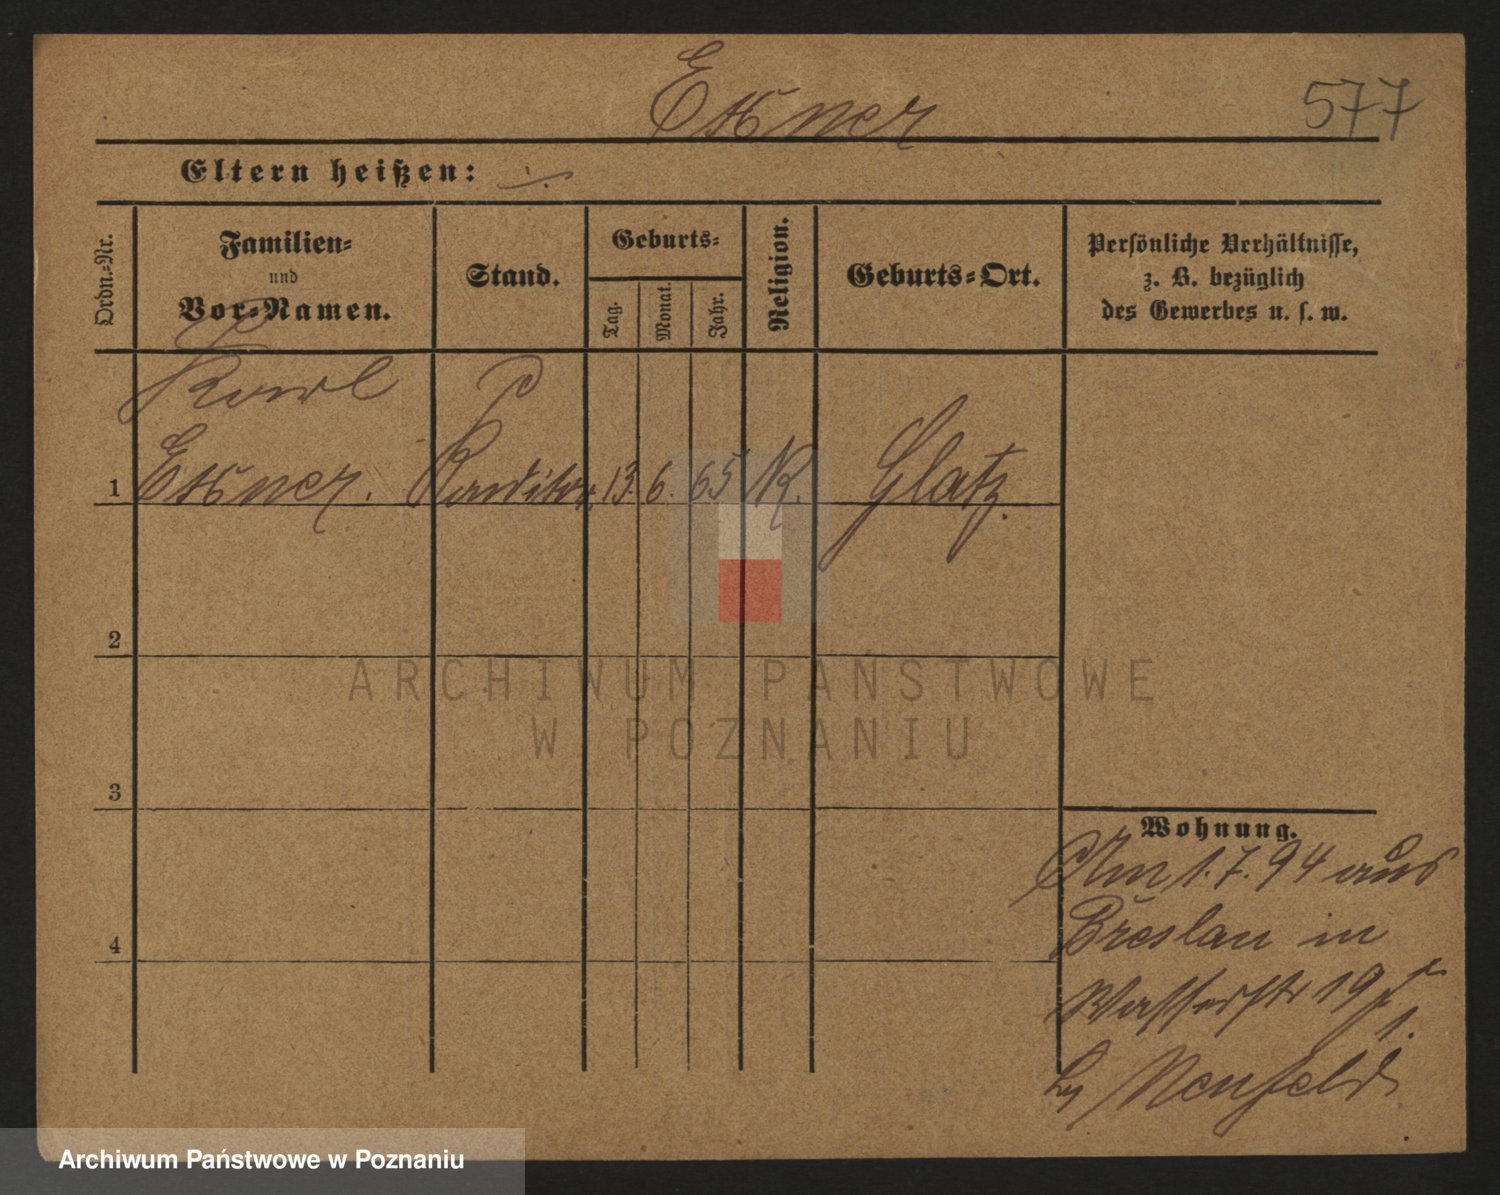 Elsner
577
Eltern heißen: ·/.
Ordn.-Nr.
Familien-
und
Vor-Namen.
Stand.
Geburts-
Tag.
Monat.
Jahr.
Religion.
Geburts-Ort.
Persönliche Verhältnisse,
z. B. bezüglich
des Gewerbes u. s. w.
Karl
1 Elsner. Konditor 13. 6. 65 K. Glatz.
2
3
4
Wohnung.
Am 1. 7. 94 aus
Breslau in
Wasserstr 19
1.
by Neufeld
ARCHIWUM PAŃSTWOWE
W POZNANIU
Archiwum Państwowe w Poznaniu